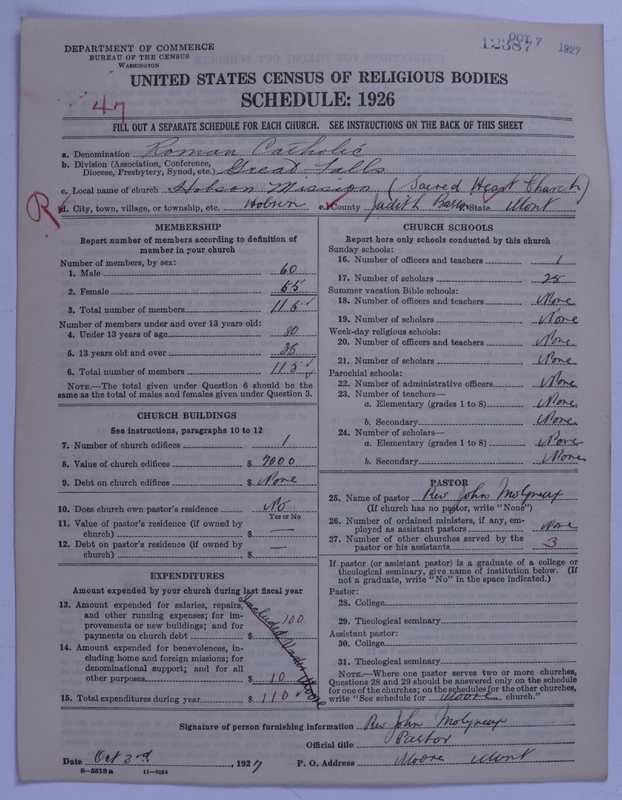 DEPARTMENT OF COMMERCE
BUREAU OF THE CENSUS
WASHINGTON
OCT 7 1927
12387
UNITED STATES CENSUS OF RELIGIOUS BODIES
SCHEDULE: 1926
47
FILL OUT A SEPARATE SCHEDULE FOR EACH CHURCH. SEE INSTRUCTIONS ON THE BACK OF THIS SHEET
a. Denomination Roman Catholic
b. Division (Association, Conference, Diocese, Presbytery, Synod, etc.) Great Falls
c. Local name of church Hobson Mission (Sacred Heart Church)
R
d. City, town, village, or township, etc. Hobson e. County Judith Basin State Mont
MEMBERSHIP
Report number of members according to definition of
member in your church
Number of members, by sex:
1. Male 60
2. Female 55
3. Total number of members 115
Number of members under and over 13 years old:
4. Under 13 years of age 80
5. 13 years old and over 35
6. Total number of members 115
NOTE.—The total given under Question 6 should be
same as the total of males and females given under Question 3.
CHURCH BUILDINGS
See instructions, paragraphs 10 to 12
7. Number of church edifices 1
8. Value of church edifices $ 7000
9. Debt on church edifices $ None
10. Does church own pastor's residence No
Yes or No
11. Value of pastor's residence (if owned by
church) $ —
12. Debt on pastor's residence (if owned by
church) $ —
EXPENDITURES
Amount expended by your church during last fiscal year
13. Amount expended for salaries, repairs,
and other running expenses; for im-
provements or new buildings; and for
payments on church debt $ 100
14. Amount expended for benevolences, in-
cluding home and foreign missions; for
denominational support; and for all
other purposes $ 10
15. Total expenditures during year $ 110
Included Under Moore
CHURCH SCHOOLS
Report here only schools conducted by this church
Sunday schools:
16. Number of officers and teachers 1
17. Number of scholars 25
Summer vacation Bible schools:
18. Number of officers and teachers None
19. Number of scholars None
Week-day religious schools:
20. Number of officers and teachers None
21. Number of scholars None
Parochial schools:
22. Number of administrative officers None
23. Number of teachers—
a. Elementary (grades 1 to 8) None
b. Secondary None
24. Number of scholars—
a. Elementary (grades 1 to 8) None
b. Secondary None
PASTOR
25. Name of pastor Rev John Molyneux
(If church has no pastor, write "None")
26. Number of ordained ministers, if any, em-
ployed as assistant pastors None
27. Number of other churches served by the
pastor or his assistants 3
If pastor (or assistant pastor) is a graduate of a college or
theological seminary, give name of institution below. (If
not a graduate, write "No" in the space indicated.)
Pastor:
28. College
29. Theological seminary
Assistant pastor:
30. College
31. Theological seminary
NOTE.—Where one pastor serves two or more churches,
Questions 28 and 29 should be answered only on the schedule
for one of the churches; on the schedules for the other churches,
write "See schedule for Moore church."
Signature of person furnishing information Rev John Molyneux
Official title Pastor
Date Oct 3rd, 1927 P. O. Address Moore Mont
8-5518a 11-9064